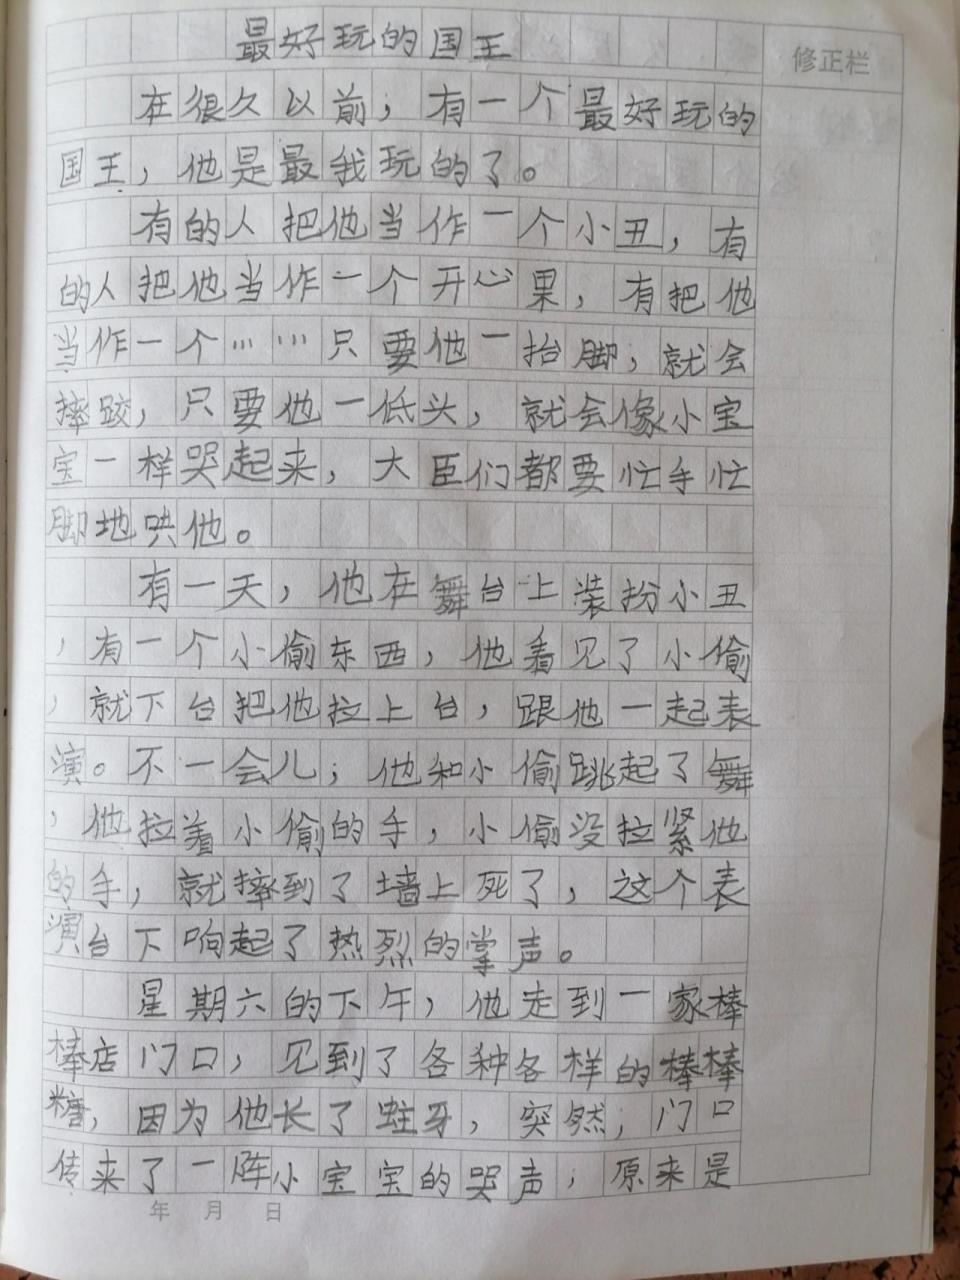 最好玩的国王
修正栏
在很久以前，有一个最好玩的
国王，他是最我玩的了。
有的人把他当作一个小丑，有
的人把他当作一个开心果，有把他
当作一个……只要他一抬脚，就会
摔跤，只要他一低头，就会像小宝
宝一样哭起来，大臣们都要忙手忙
脚地哄他。
有一天，他在舞台上装扮小丑
，有一个小偷东西，他看见了小偷
，就下台把他拉上台，跟他一起表
演。不一会儿，他和小偷跳起了舞
，他拉着小偷的手，小偷没拉紧他
的手，就摔到了墙上死了，这个表
演台下响起了热烈的掌声。
星期六的下午，他走到一家棒
棒店门口，见到了各种各样的棒棒
糖，因为他长了蛀牙，突然，门口
传来了一阵小宝宝的哭声，原来是
年 月 日